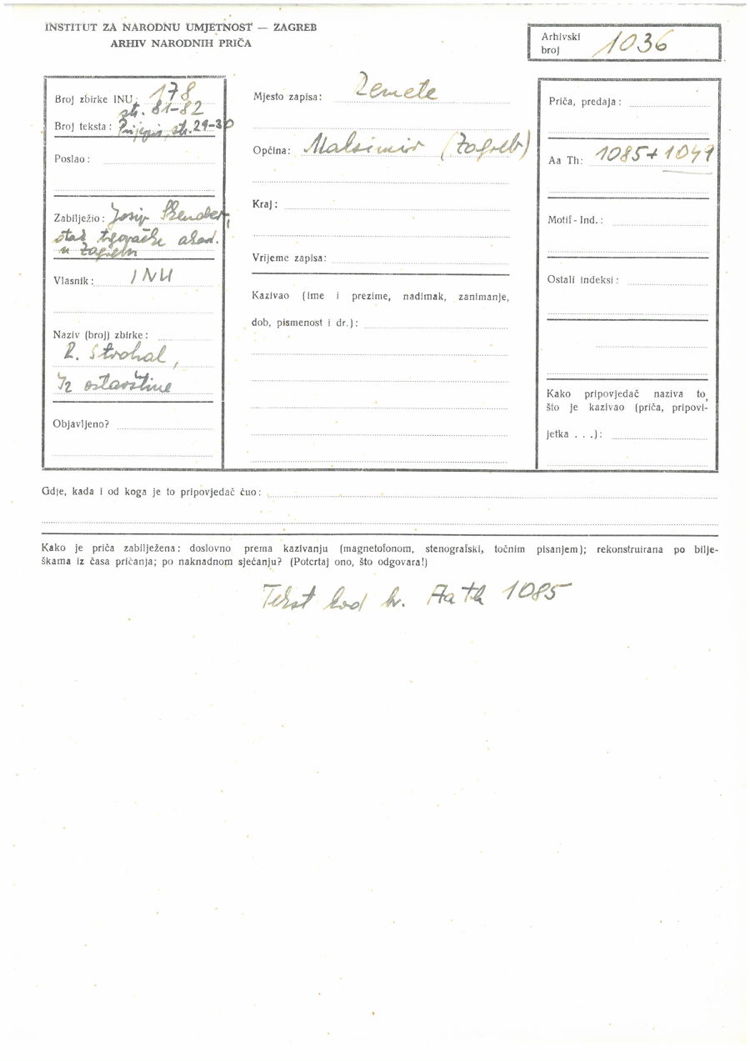 INSTITUT ZA NARODNU UMJETNOST — ZAGREB
ARHIV NARODNIH PRIČA
Arhivski
broj 1036
Broj zbirke INU: 178
str. 81-82
Broj teksta: Prijepis, str. 29-30
Poslao:
Zabilježio: Josip
u Zagrebu
Vlasnik: INU
Naziv (broj) zbirke:
R. Strohal,
Iz ostavštine
Objavljeno?
Mjesto zapisa:
Općina: Maksimir (Zagreb)
Kraj:
Vrijeme zapisa:
Kazivao (ime i prezime, nadimak, zanimanje,
dob, pismenost i dr.):
Priča, predaja:
Aa Th: 1085 + 1049
Motif - Ind.:
Ostali indeksi:
Kako pripovjedač naziva to,
što je kazivao (priča, pripovi-
jetka . . .):
Gdje, kada i od koga je to pripovjedač čuo:
Kako je priča zabilježena: doslovno prema kazivanju (magnetofonom, stenografski, točnim pisanjem); rekonstruirana po bilje-
škama iz časa pričanja; po naknadnom sjećanju? (Potcrtaj ono, što odgovara!)
Tekst kod br. Aa Th 1085